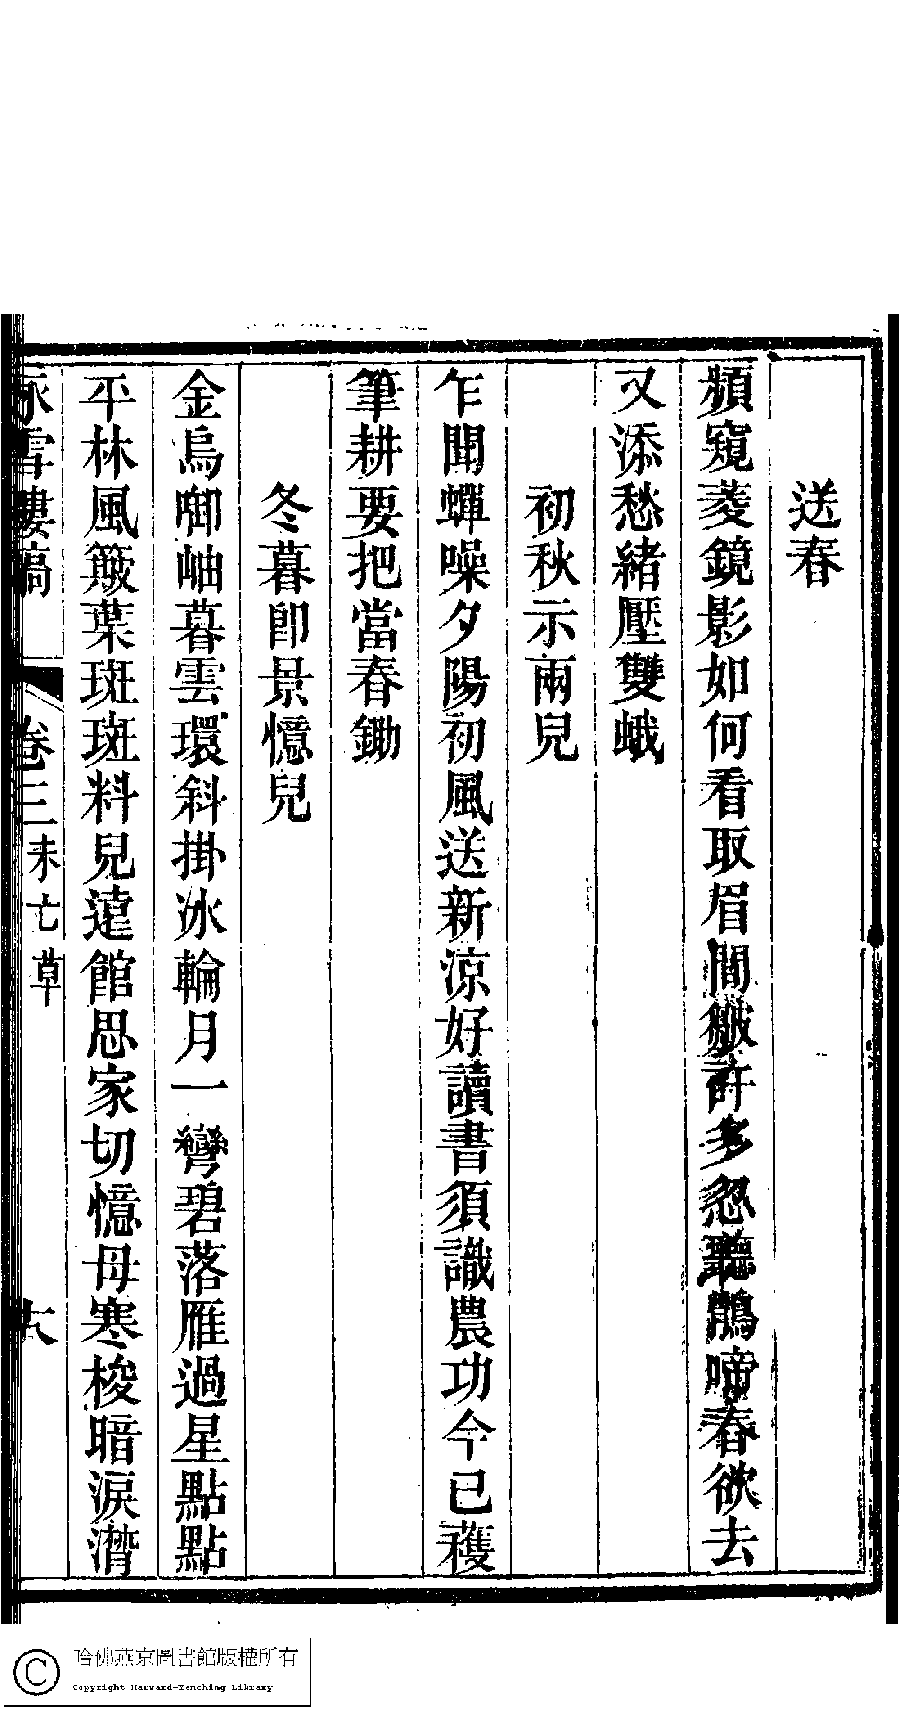 送春
頻窺菱鏡影如何看取眉間皺許多忽聽鵑啼春欲去
又添愁緒壓雙蛾
初秋示兩兒
乍聞蟬噪夕陽初風送新涼好讀書須識農功今已穫
筆耕要把當春鋤
冬暮卽景憶兒
金烏啣岫暮雲環斜掛冰輪月一彎碧落雁過星點點
平林風簸葉斑斑料兒遠館思家切憶母寒梭暗淚潸
詠雪樓稿 卷三 未亡草 十八
哈佛燕京圖書館版權所有
Copyright Harvard-Yenching Library